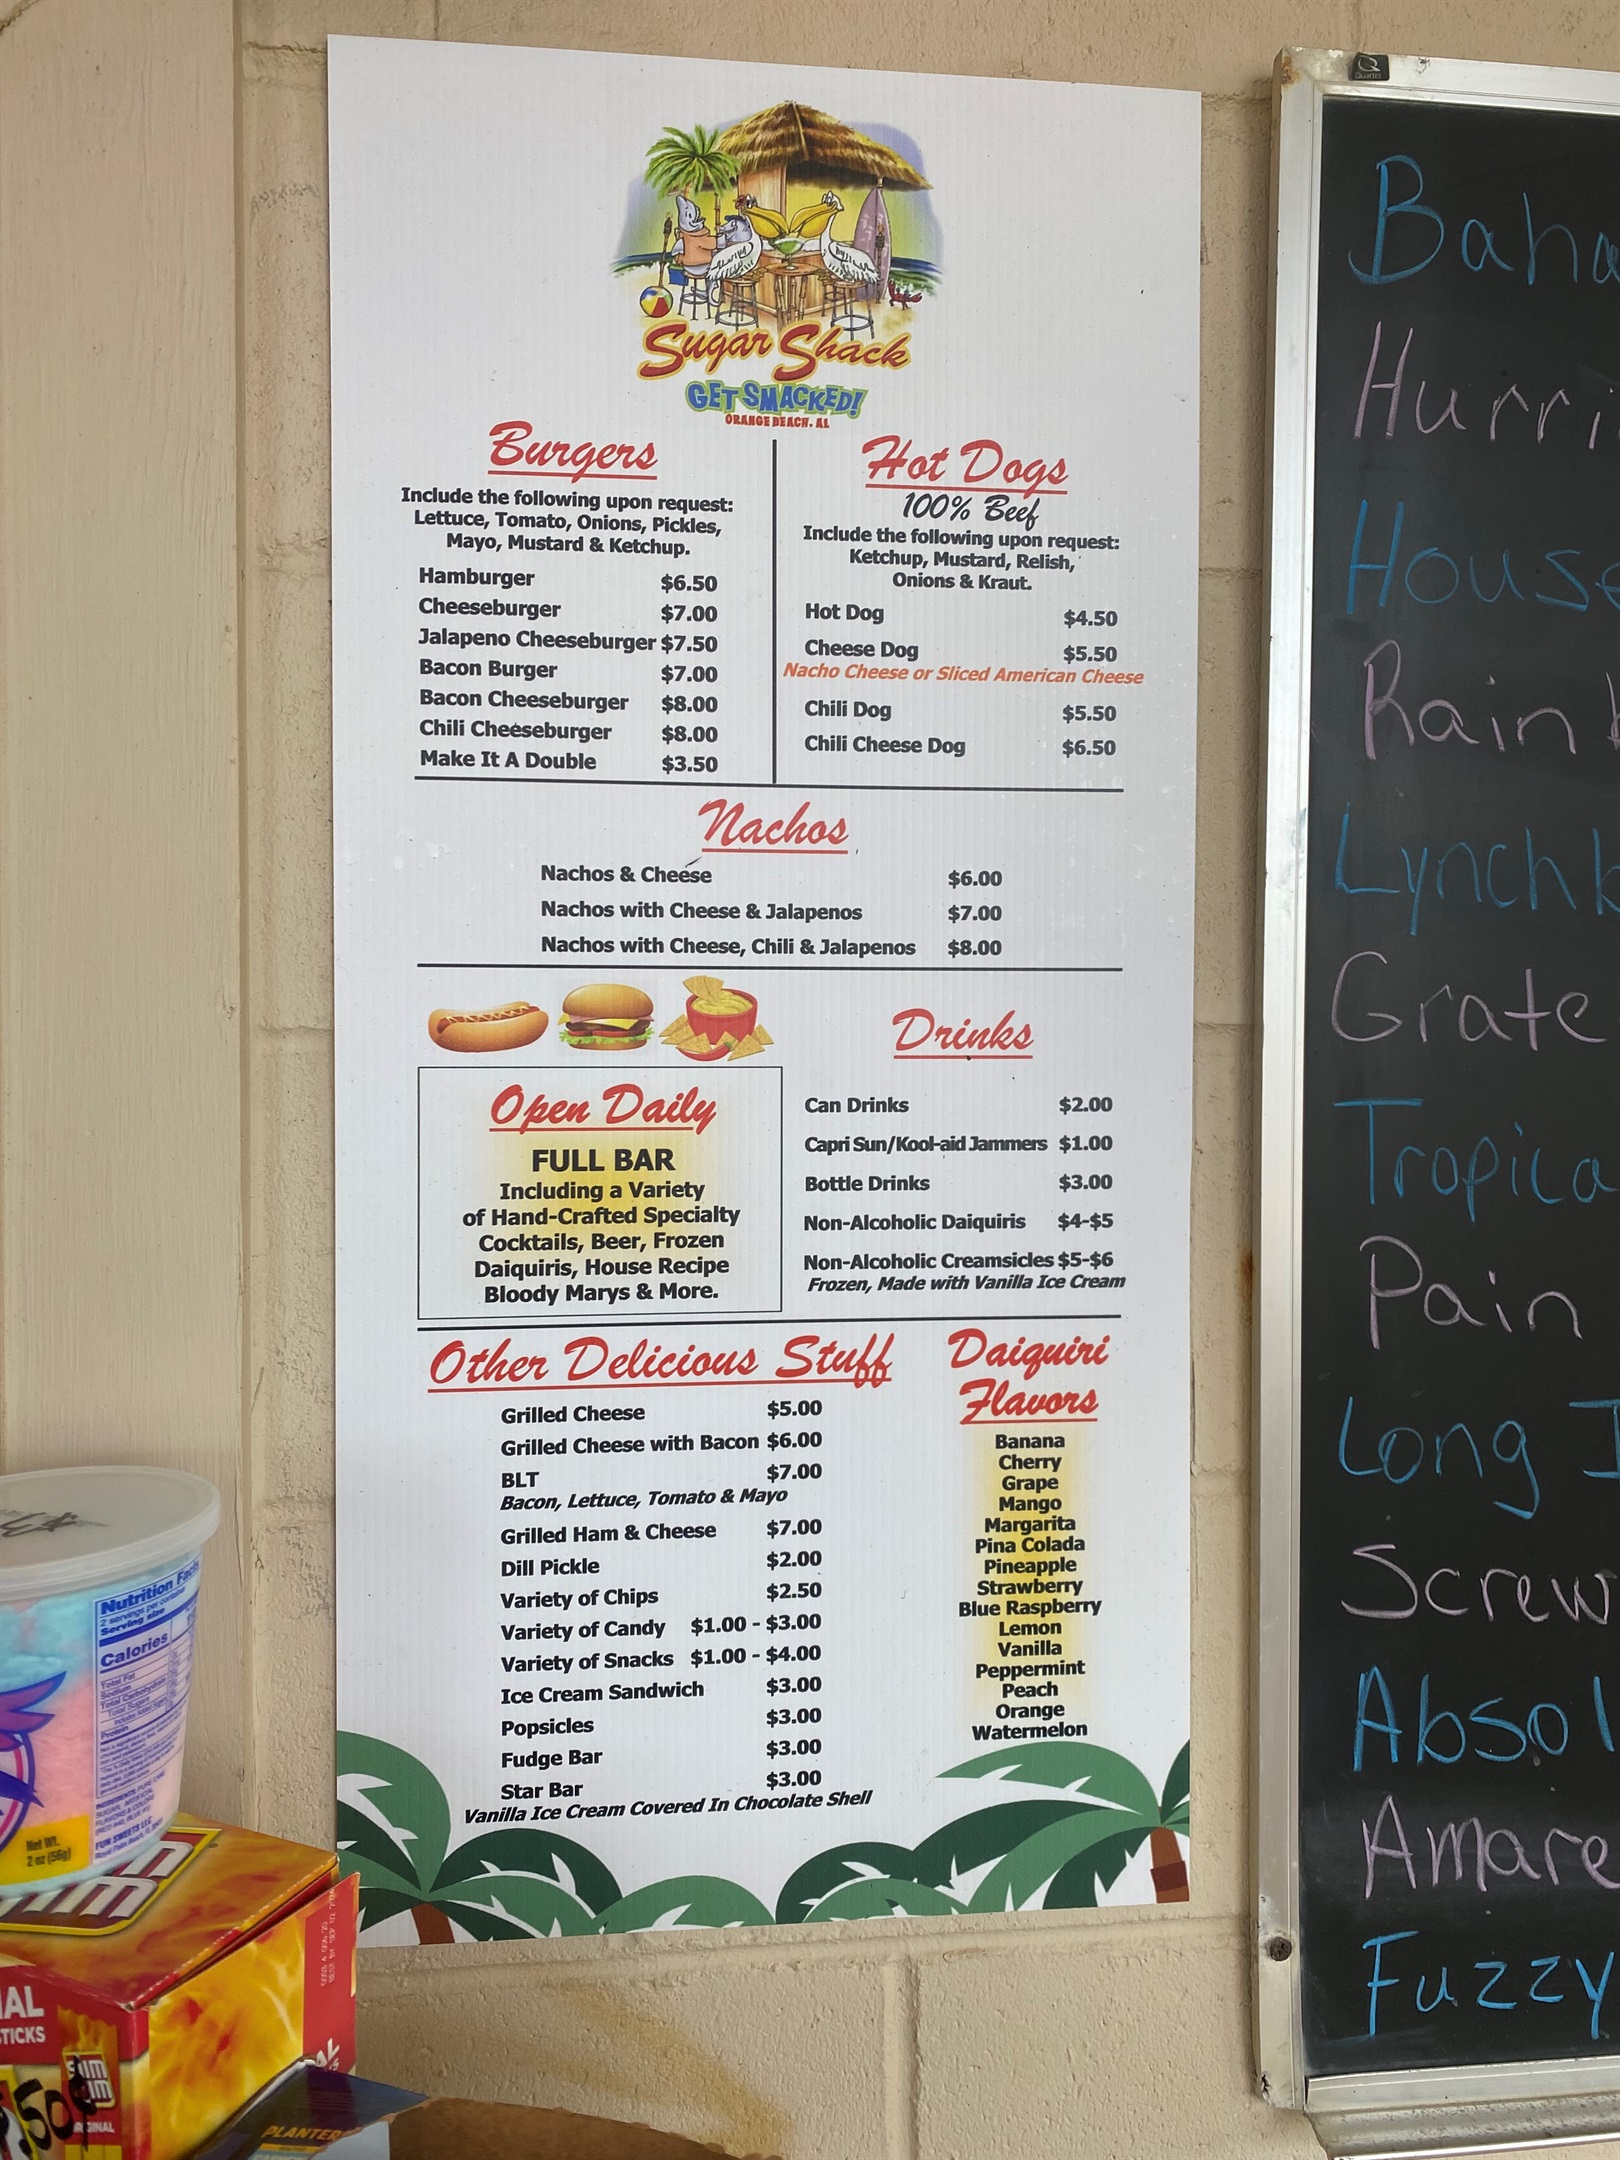 Sugar Shack
GET SMACKED!
ORANGE BEACH, AL
Burgers
Include the following upon request:
Lettuce, Tomato, Onions, Pickles,
Mayo, Mustard & Ketchup.
Hamburger $6.50
Cheeseburger $7.00
Jalapeno Cheeseburger $7.50
Bacon Burger $7.00
Bacon Cheeseburger $8.00
Chili Cheeseburger $8.00
Make It A Double $3.50
Hot Dogs
100% Beef
Include the following upon request:
Ketchup, Mustard, Relish,
Onions & Kraut.
Hot Dog $4.50
Cheese Dog $5.50
Nacho Cheese or Sliced American Cheese
Chili Dog $5.50
Chili Cheese Dog $6.50
Nachos
Nachos & Cheese $6.00
Nachos with Cheese & Jalapenos $7.00
Nachos with Cheese, Chili & Jalapenos $8.00
Open Daily
FULL BAR
Including a Variety
of Hand-Crafted Specialty
Cocktails, Beer, Frozen
Daiquiris, House Recipe
Bloody Marys & More.
Drinks
Can Drinks $2.00
Capri Sun/Kool-aid Jammers $1.00
Bottle Drinks $3.00
Non-Alcoholic Daiquiris $4-$5
Non-Alcoholic Creamsicles $5-$6
Frozen, Made with Vanilla Ice Cream
Other Delicious Stuff
Grilled Cheese $5.00
Grilled Cheese with Bacon $6.00
BLT $7.00
Bacon, Lettuce, Tomato & Mayo
Grilled Ham & Cheese $7.00
Dill Pickle $2.00
Variety of Chips $2.50
Variety of Candy $1.00 - $3.00
Variety of Snacks $1.00 - $4.00
Ice Cream Sandwich $3.00
Popsicles $3.00
Fudge Bar $3.00
Star Bar $3.00
Vanilla Ice Cream Covered In Chocolate Shell
Daiquiri
Flavors
Banana
Cherry
Grape
Mango
Margarita
Pina Colada
Pineapple
Strawberry
Blue Raspberry
Lemon
Vanilla
Peppermint
Peach
Orange
Watermelon
Quartet
Baha
Hurri
House
Rain
Lynchb
Grate
Tropica
Pain
Long I
Screw
Absol
Amare
Fuzzy
Nutrition Facts
2 servings per container
Serving size
Calories
Total Fat
Sodium
Total Carbohydrate
Total Sugars
Protein
FUN SWEETS LLC
Net Wt.
2 oz (56g)
AL
TICKS
SLIM
JIM
.50¢
PLANTER